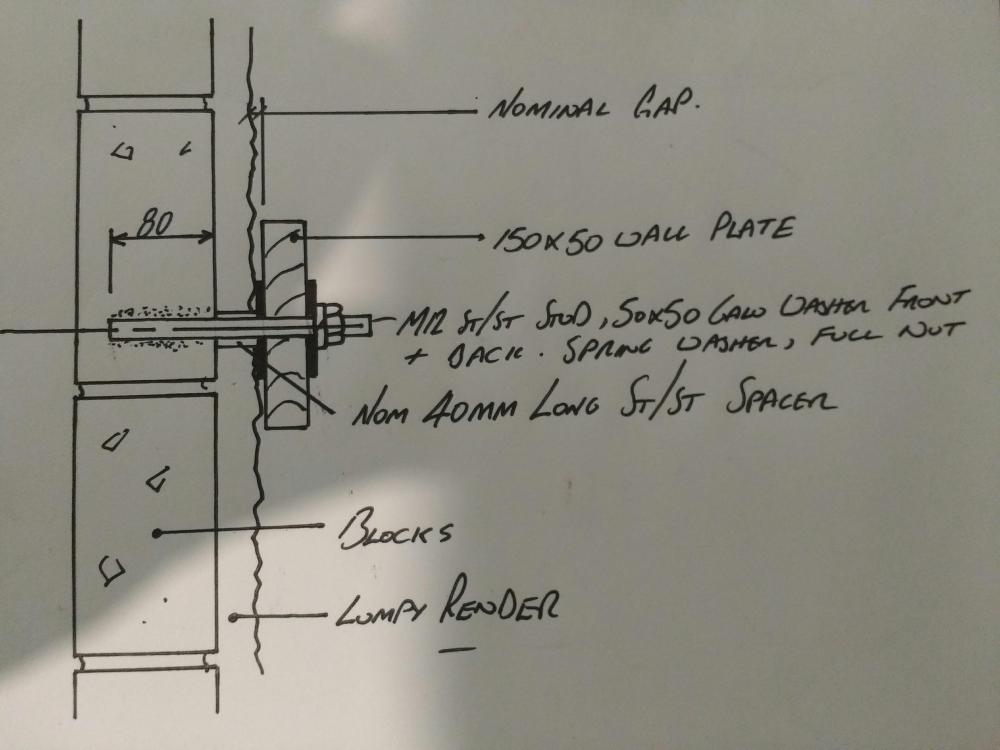 NOMINAL GAP.
80
150x50 WALL PLATE
M12 ST/ST STUD, 50x50 GALV WASHER FRONT
+ BACK. SPRING WASHER, FULL NUT
NOM 40MM LONG ST/ST SPACER
BLOCKS
LUMPY RENDER